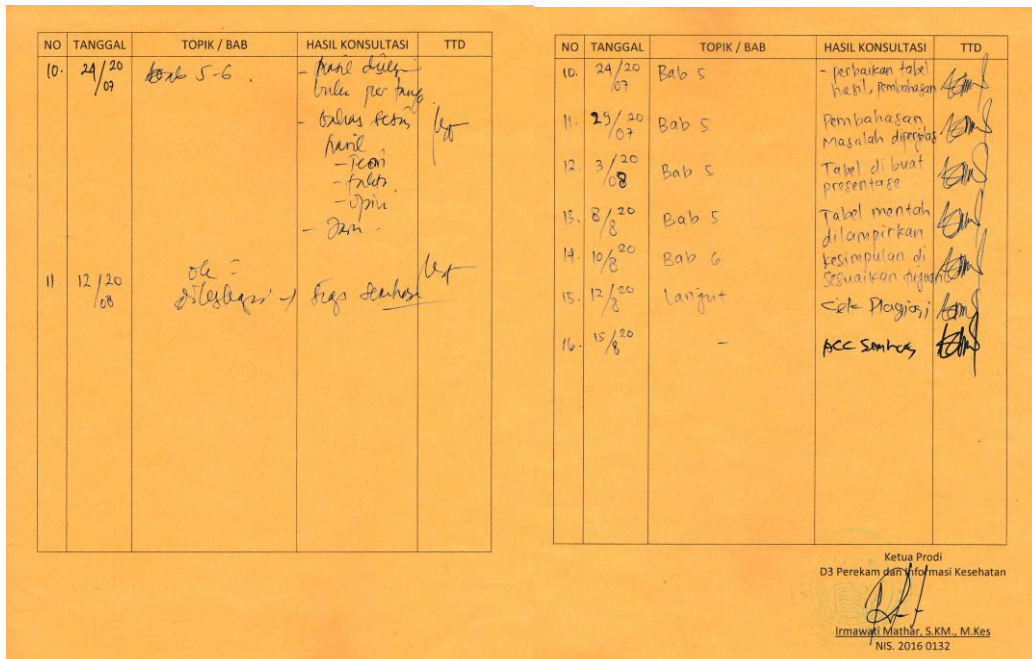 NO TANGGAL TOPIK / BAB HASIL KONSULTASI TTD
10. 24/20 5-6. - hasil
07
- bahas sesuai
hasil
- Teori
- fakta
- opini
11 12/20 ok
08 dilengkapi →
NO TANGGAL TOPIK / BAB HASIL KONSULTASI TTD
10. 24/20 Bab 5 - perbaikan tabel
07 hasil, pembahasan
11. 29/20 Bab 5 Pembahasan
07 Masalah diperjelas
12. 3/20 Bab 5 Tabel di buat
08 presentase
13. 8/20 Bab 5 Tabel mentah
8 dilampirkan
14. 10/20 Bab 6 kesimpulan di
8 Sesuaikan tujuan
15. 12/20 Lanjut Cek Plagiasi
8
16. 15/20 - ACC Semhas
8
Ketua Prodi
D3 Perekam dan Informasi Kesehatan
Irmawati Mathar, S.KM., M.Kes
NIS. 2016 0132